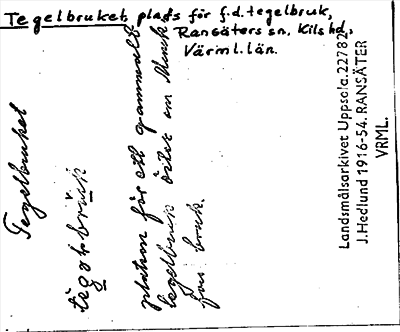 Tegelbruket, plats för f.d. tegelbruk,
Ransäters sn, Kils hd,
Värml. län.
Tegelbruket
platsen för ett gammalt
tegelbruk öster om
Landsmålsarkivet Uppsala. 22782
J. Hedlund 1916-54. RANSÄTER
VRML.